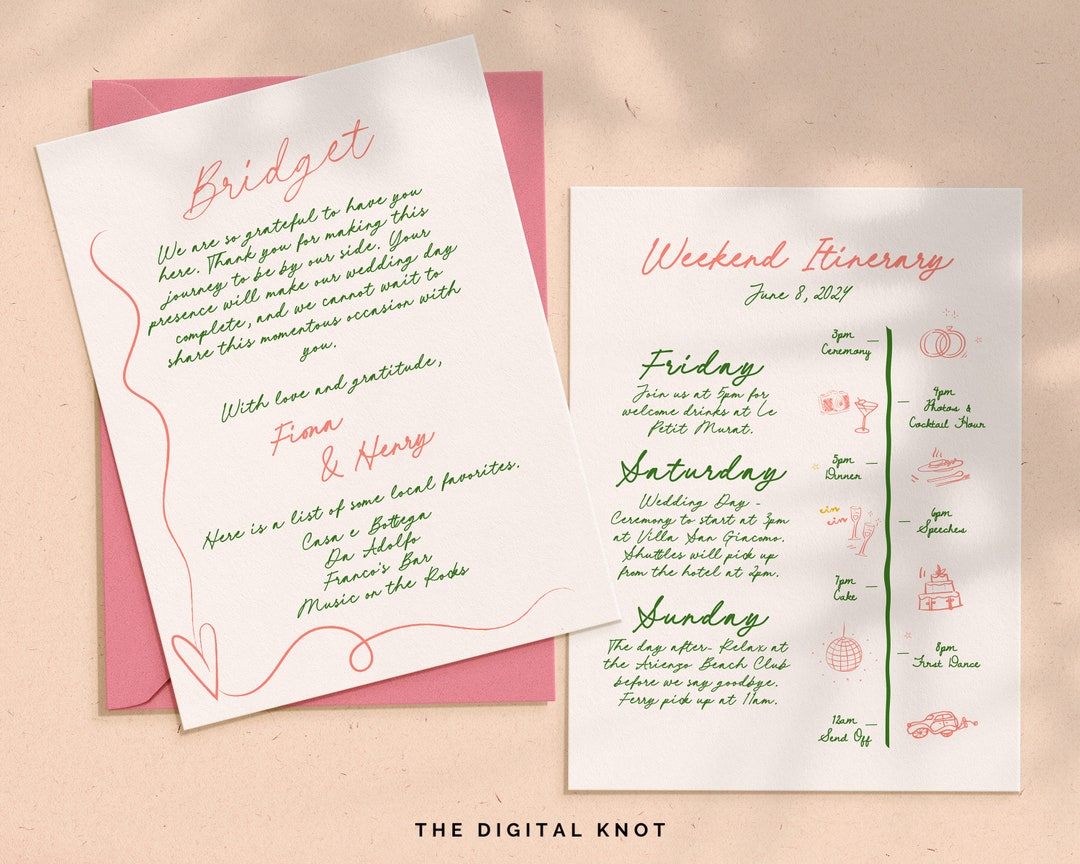 Bridget
We are so grateful to have you
here. Thank you for making this
journey to be by our side. Your
presence will make our wedding day
complete, and we cannot wait to
share this momentous occasion with
you.
With love and gratitude,
Fiona
& Henry
Here is a list of some local favorites.
Casa e Bottega
Da Adolfo
Franco's Bar
Music on the Rocks
Weekend Itinerary
June 8, 2024
Friday
Join us at 5pm for
welcome drinks at Le
Petit Murat.
Saturday
Wedding Day -
Ceremony to start at 3pm
at Villa San Giacomo.
Shuttles will pick up
from the hotel at 2pm.
Sunday
The day after- Relax at
the Arienzo Beach Club
before we say goodbye.
Ferry pick up at 11am.
3pm
Ceremony
4pm
Photos &
Cocktail Hour
5pm
Dinner
cin
cin
6pm
Speeches
7pm
Cake
8pm
First Dance
12am
Send Off
THE DIGITAL KNOT